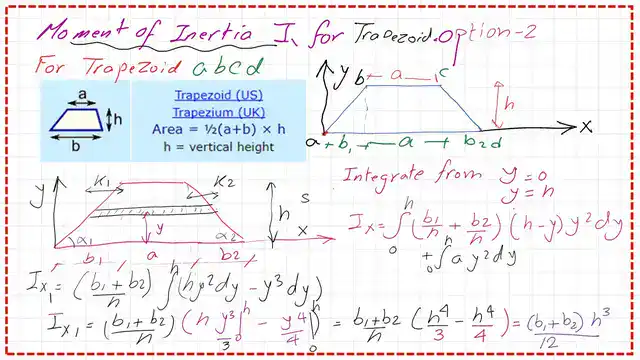 Moment of Inertia Ix for Trapezoid. option-2
For Trapezoid abcd
a
h
b
Trapezoid (US)
Trapezium (UK)
Area = ½(a+b) × h
h = vertical height
y
b a c
h
a b1 a b2 d x
y K1 K2
h
s
x
y
α1 α2
b1 a b2
Integrate from y=0
y=h
Ix = ∫₀ʰ (b1/h + b2/h) (h-y) y² dy
+ ∫₀ʰ a y² dy
Ix1 = (b1+b2)/h ∫₀ʰ (hy² dy - y³ dy)
Ix1 = (b1+b2)/h (h y³/3 |₀ʰ - y⁴/4 |₀ʰ) = b1+b2/h (h⁴/3 - h⁴/4) = (b1+b2) h³/12